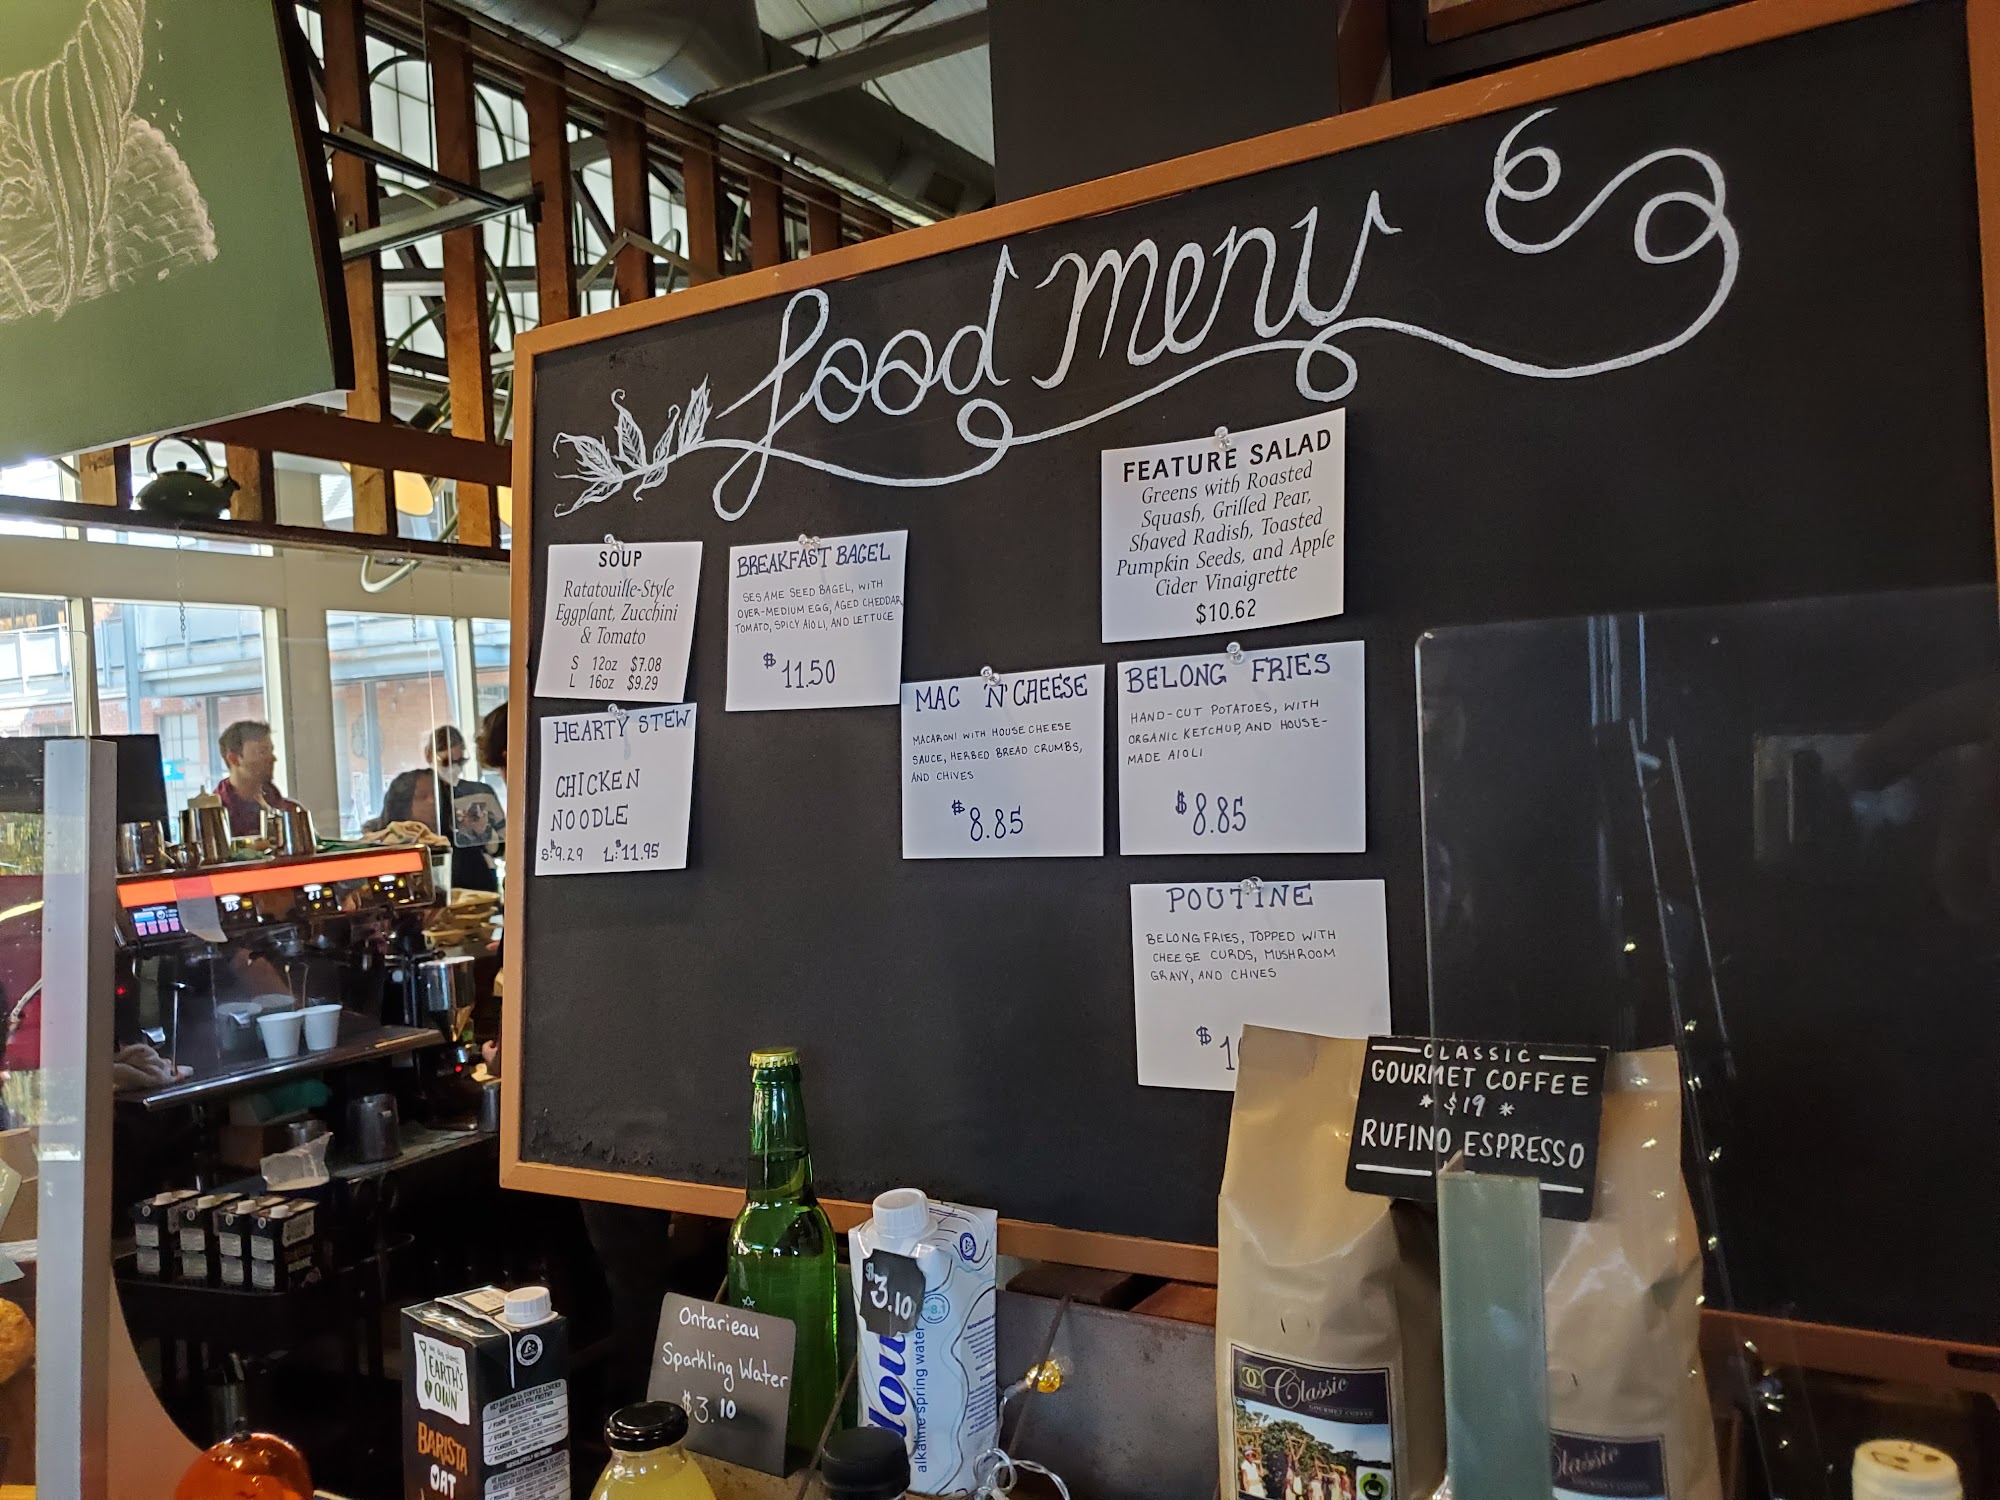 food menu
SOUP
Ratatouille-Style
Eggplant, Zucchini
& Tomato
S 12oz $7.08
L 16oz $9.29
HEARTY STEW
CHICKEN
NOODLE
S:$9.29 L:$11.95
BREAKFAST BAGEL
SESAME SEED BAGEL, WITH
OVER-MEDIUM EGG, AGED CHEDDAR,
TOMATO, SPICY AIOLI, AND LETTUCE
$11.50
MAC 'N' CHEESE
MACARONI WITH HOUSE CHEESE
SAUCE, HERBED BREAD CRUMBS,
AND CHIVES
$8.85
FEATURE SALAD
Greens with Roasted
Squash, Grilled Pear,
Shaved Radish, Toasted
Pumpkin Seeds, and Apple
Cider Vinaigrette
$10.62
BELONG FRIES
HAND-CUT POTATOES, WITH
ORGANIC KETCHUP, AND HOUSE-
MADE AIOLI
$8.85
POUTINE
BELONG FRIES, TOPPED WITH
CHEESE CURDS, MUSHROOM
GRAVY, AND CHIVES
$1
CLASSIC
GOURMET COFFEE
* $19 *
RUFINO ESPRESSO
Ontarieau
Sparkling Water
$3.10
$3.10
alkaline spring water
8.1
EARTH'S
OWN
BARISTA
OAT
Classic
GOURMET COFFEE
Classic